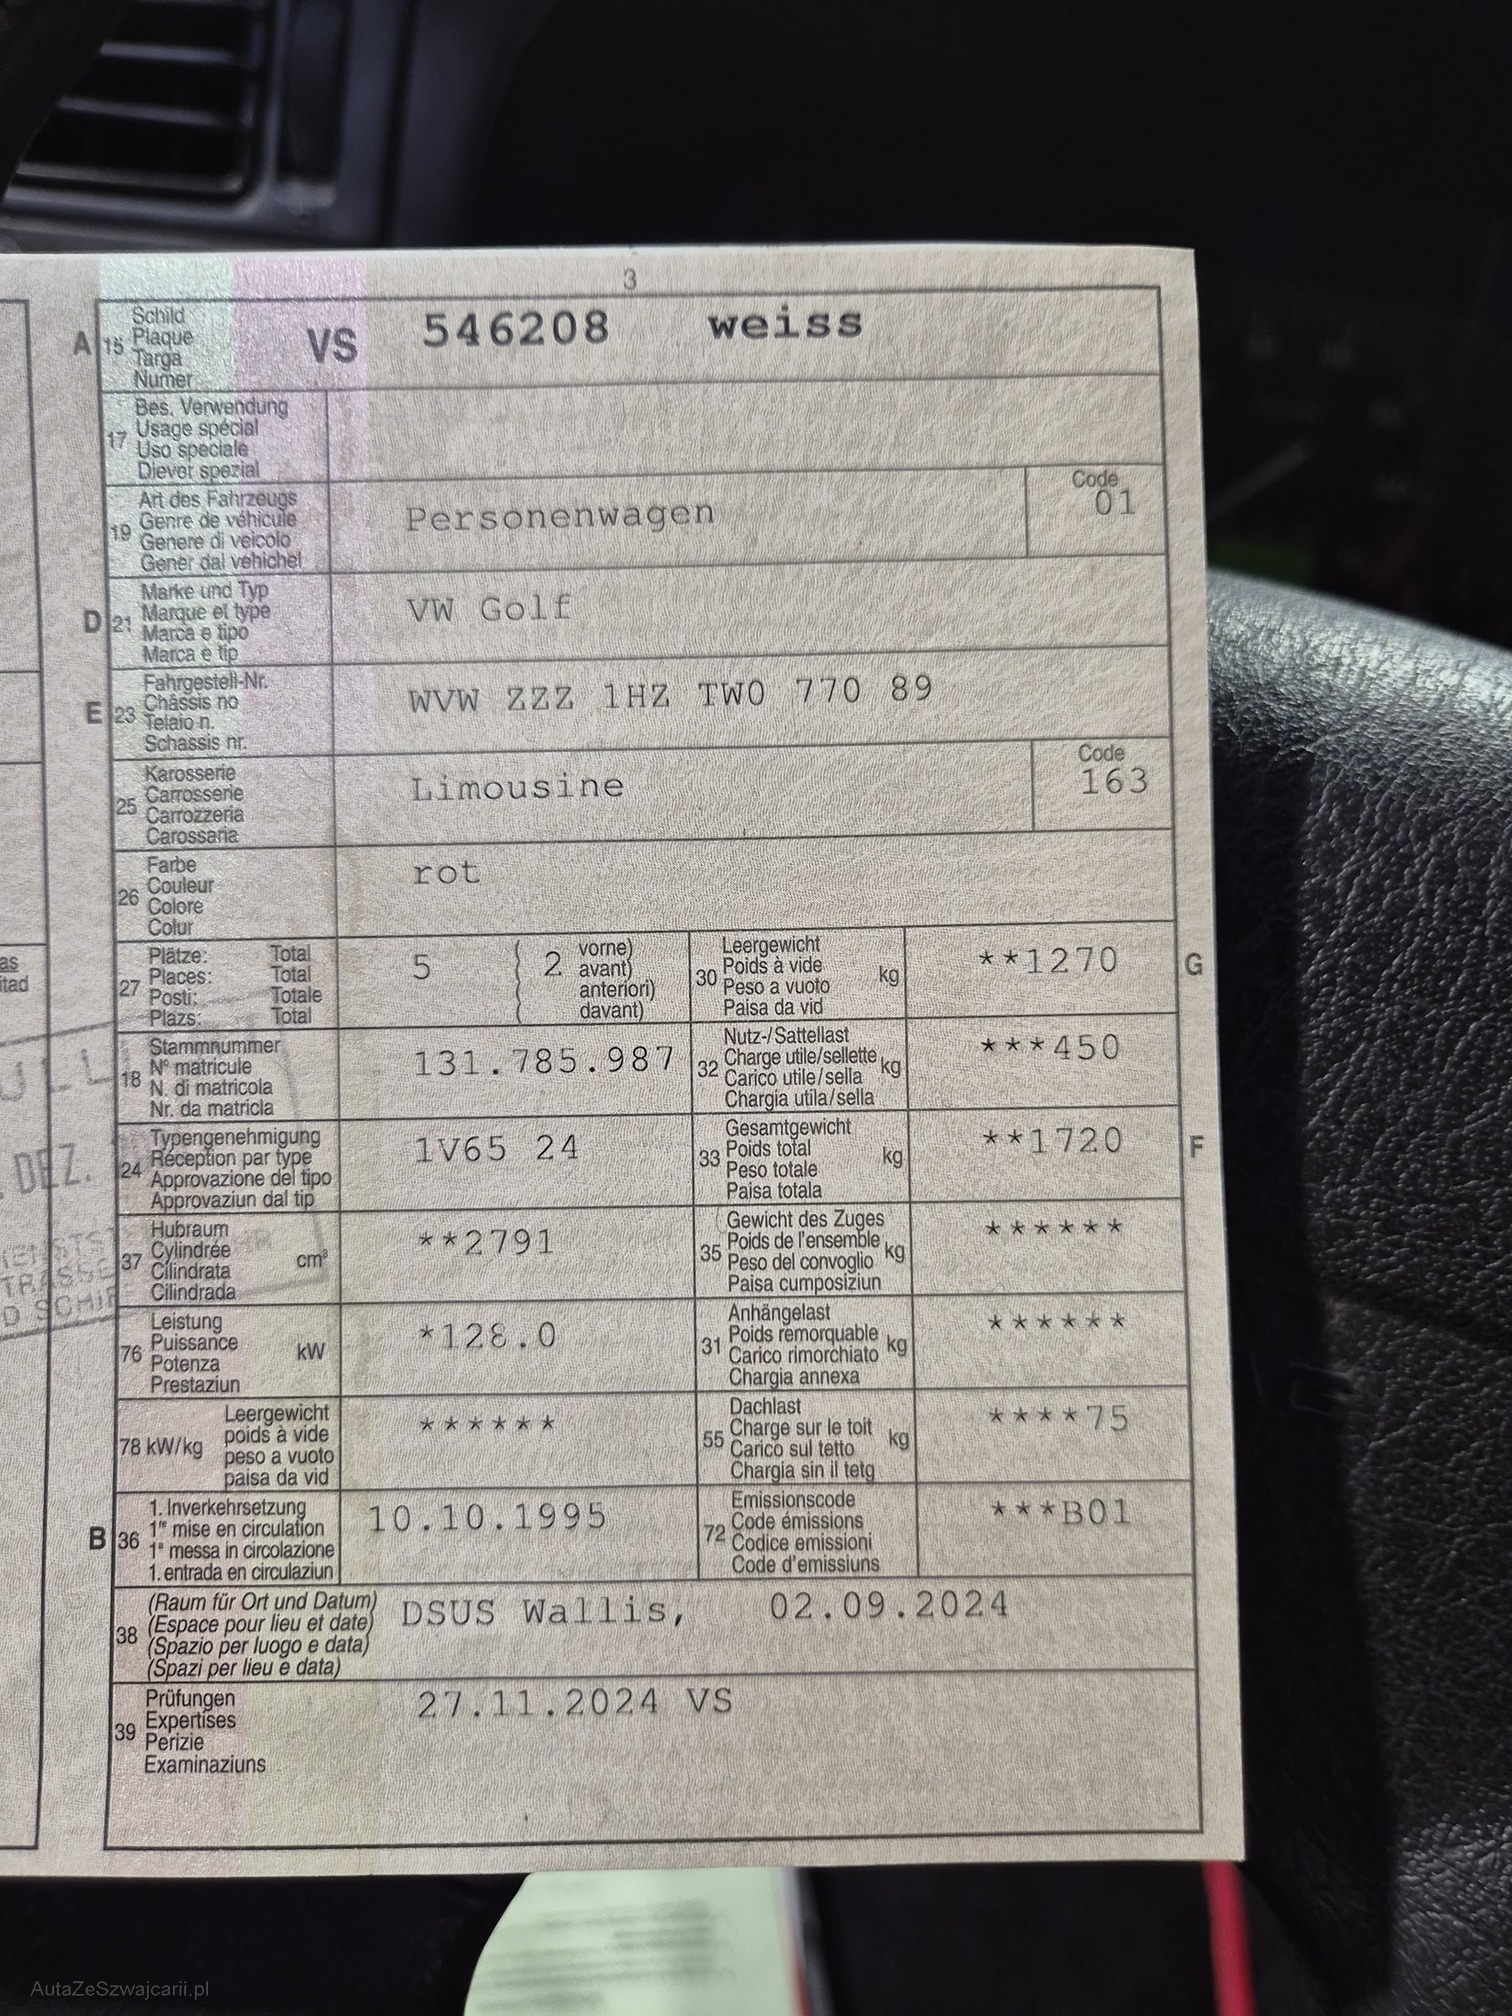 3
A 15 Schild
Plaque
Targa
Numer
VS 546208 weiss
17 Bes. Verwendung
Usage spécial
Uso speciale
Diever spezial
19 Art des Fahrzeugs
Genre de véhicule
Genere di veicolo
Gener dal vehichel
Personenwagen
Code
01
D 21 Marke und Typ
Marque et type
Marca e tipo
Marca e tip
VW Golf
E 23 Fahrgestell-Nr.
Châssis no
Telaio n.
Schassis nr.
WVW ZZZ 1HZ TW0 770 89
25 Karosserie
Carrosserie
Carrozzeria
Carossaria
Limousine
Code
163
26 Farbe
Couleur
Colore
Colur
rot
27 Plätze: Total
Places: Total
Posti: Totale
Plazs: Total
5 ( 2 vorne)
( avant)
( anteriori)
( davant)
30 Leergewicht
Poids à vide
Peso a vuoto
Paisa da vid
kg
**1270
G
18 Stammnummer
N° matricule
N. di matricola
Nr. da matricla
131.785.987
32 Nutz-/Sattellast
Charge utile/sellette
Carico utile/sella
Chargia utila/sella
kg
***450
24 Typengenehmigung
Réception par type
Approvazione del tipo
Approvaziun dal tip
1V65 24
33 Gesamtgewicht
Poids total
Peso totale
Paisa totala
kg
**1720
F
37 Hubraum
Cylindrée
Cilindrata
Cilindrada
cm³
**2791
35 Gewicht des Zuges
Poids de l'ensemble
Peso del convoglio
Paisa cumposiziun
kg
******
76 Leistung
Puissance
Potenza
Prestaziun
kW
*128.0
31 Anhängelast
Poids remorquable
Carico rimorchiato
Chargia annexa
kg
******
78 kW/kg Leergewicht
poids à vide
peso a vuoto
paisa da vid
******
55 Dachlast
Charge sur le toit
Carico sul tetto
Chargia sin il tetg
kg
****75
B 36 1. Inverkehrsetzung
1re mise en circulation
1a messa in circolazione
1. entrada en circulaziun
10.10.1995
72 Emissionscode
Code émissions
Codice emissioni
Code d'emissiuns
***B01
38 (Raum für Ort und Datum)
(Espace pour lieu et date)
(Spazio per luogo e data)
(Spazi per lieu e data)
DSUS Wallis, 02.09.2024
39 Prüfungen
Expertises
Perizie
Examinaziuns
27.11.2024 VS
DEZ.
AutaZeSzwajcarii.pl